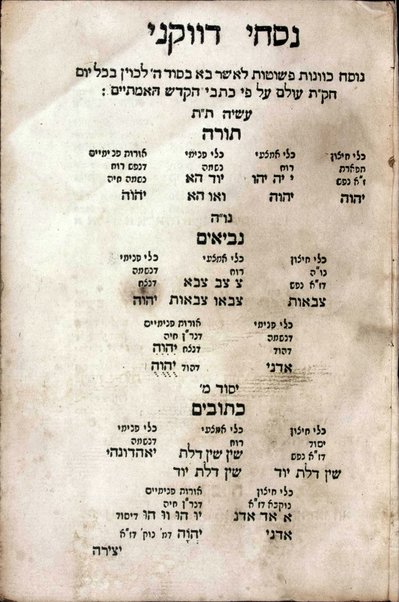 נסחי דווקני
נוסח כוונות פשוטות לאשר בא בסוד ה' לכוין בכל יום
חק״ת עולם על פי כתבי הקדש האמתיים :
עשיה ת״ת
תורה
כלי חיצון כלי אמצעי כלי פנימי אורות פנימיים
תפארת רוח נשמה דנפש רוח
ז״א נפש י יה יהו יוד הא נשמה חיה
יהוה יהוה ואו הא יהוה
נו״ה
נביאים
כלי חיצון כלי אמצעי כלי פנימי
נו״ה רוח דנשמה
דז״א נפש צ צב צבא דנלח
צבאות צבאו צבאות יהוה
כלי פנימי אורות פנימיים
דנשמה דנר״ן חיה
דהוד דנלח יהוה
אדני דהוד יהוה
יסוד מ'
כתובים
כלי חיצון כלי אמצעי כלי פנימי
יסוד רוח דנשמה
דז״א נפש שין שין דלת יאהדונהי
שין דלת יוד שין דלת יוד
כלי חיצון אורות פנימיים
נוקבא דז״א דנר״ן חיה
א אד אדנ יו הו וו הו דיסוד
אדני יהוה דמ' נוק' דז״א
יצירה